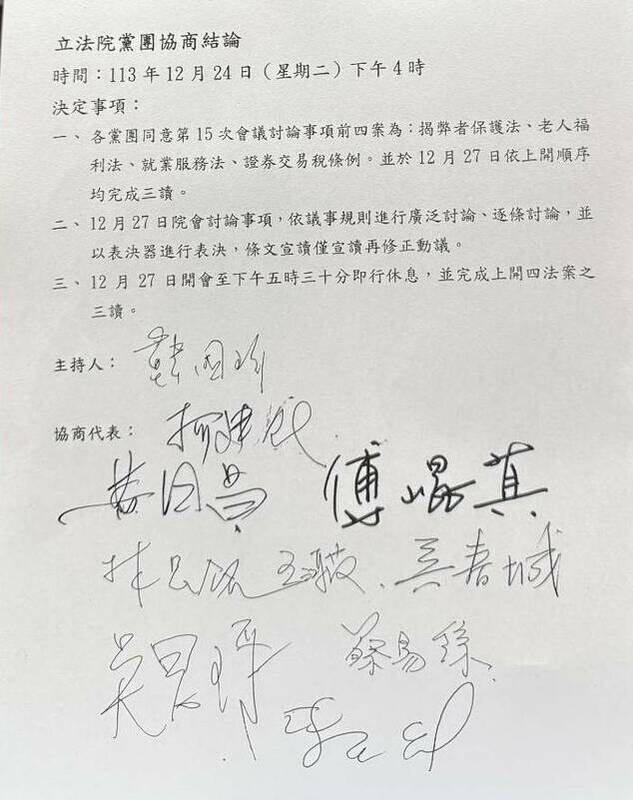 立法院黨團協商結論
時間：113 年 12 月 24 日（星期二）下午 4 時
決定事項：
一、各黨團同意第 15 次會議討論事項前四案為：揭弊者保護法、老人福
利法、就業服務法、證券交易稅條例。並於 12 月 27 日依上開順序
均完成三讀。
二、12 月 27 日院會討論事項，依議事規則進行廣泛討論、逐條討論，並
以表決器進行表決，條文宣讀僅宣讀再修正動議。
三、12 月 27 日開會至下午五時三十分即行休息，並完成上開四法案之
三讀。
主持人：韓國瑜
協商代表：柯建銘
黃國昌 傅崐萁
吳春城